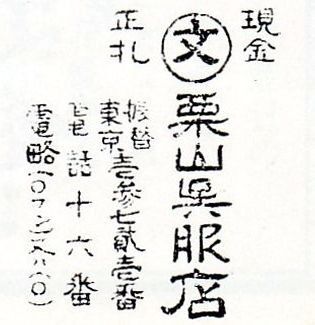 現金
正札
文
栗山呉服店
振替
東京壱参七貳壱番
電話十六番
電略